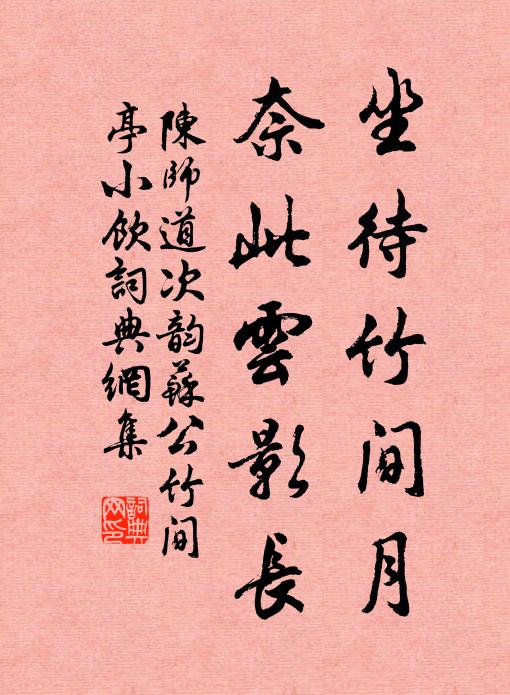 坐待竹間月
奈此雲影長
陳師道次韵蘇公竹间
亭小飲詞典網集
詞典网印